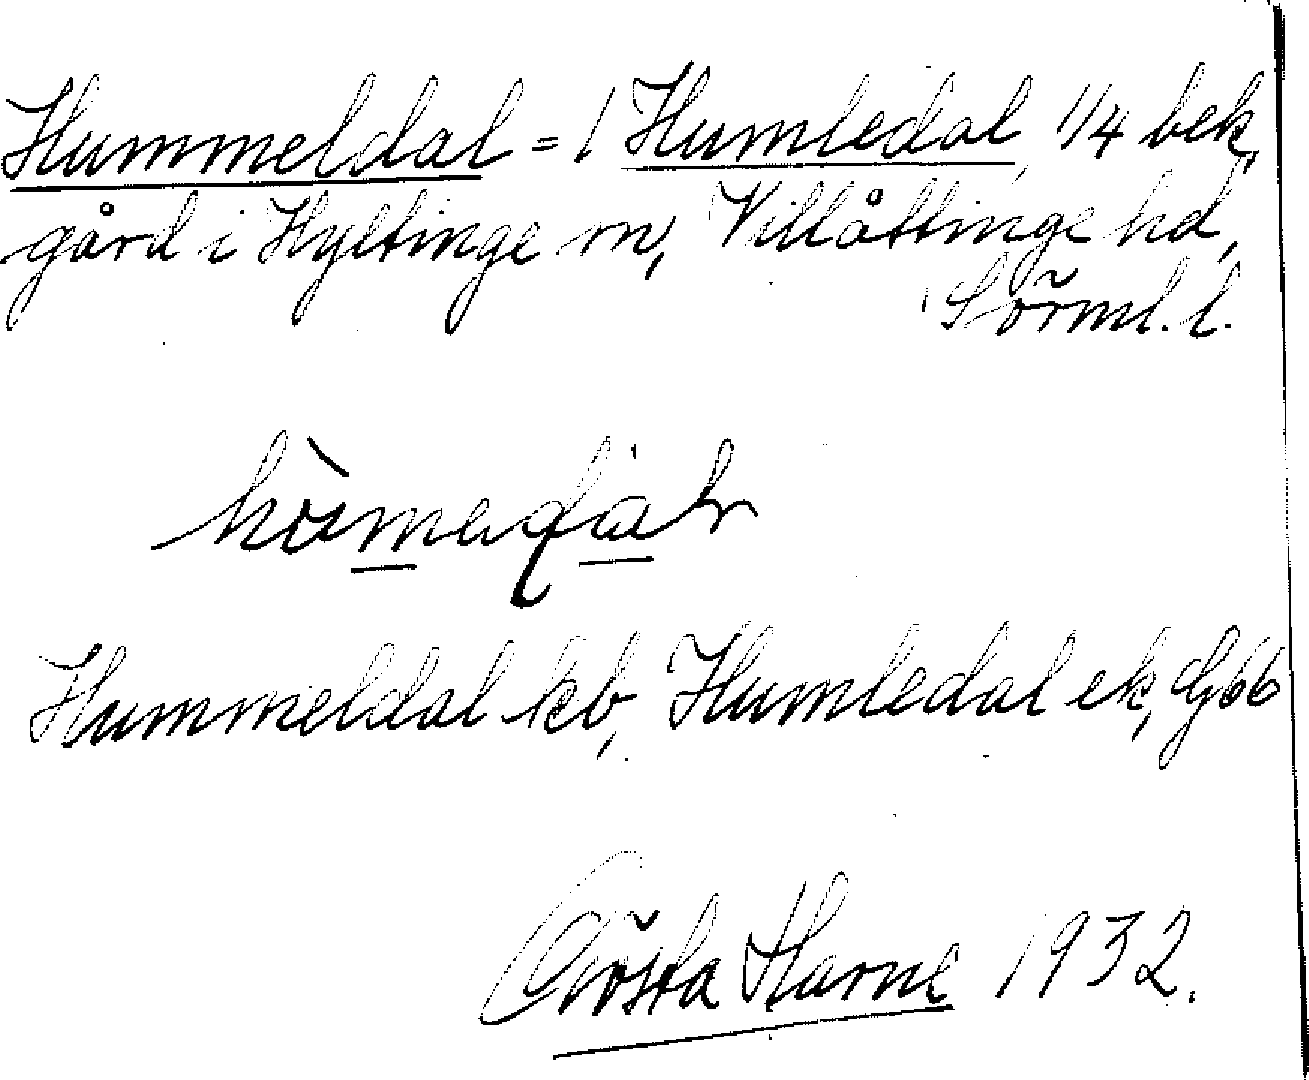 Hummeldal = / Humledal, 1/4 bek,
gård i Hyltinge sn, Villåttinge hd,
Sörml. l.
Hummeldal kb, Humledal ek, Gbb
Gösta Harne 1932.